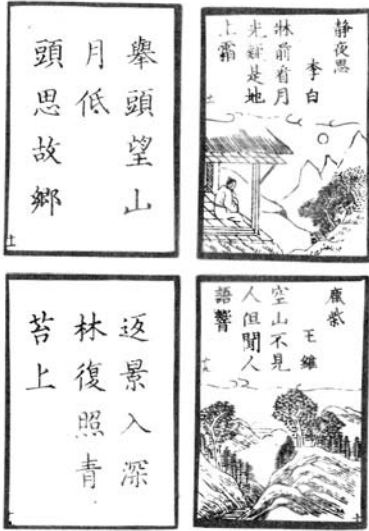 静夜思
李白
牀前看月
光疑是地
上霜
舉頭望山
月低
頭思故鄉
十一
鹿柴
王維
空山不見
人但聞人
語響
返景入深
林復照青
苔上